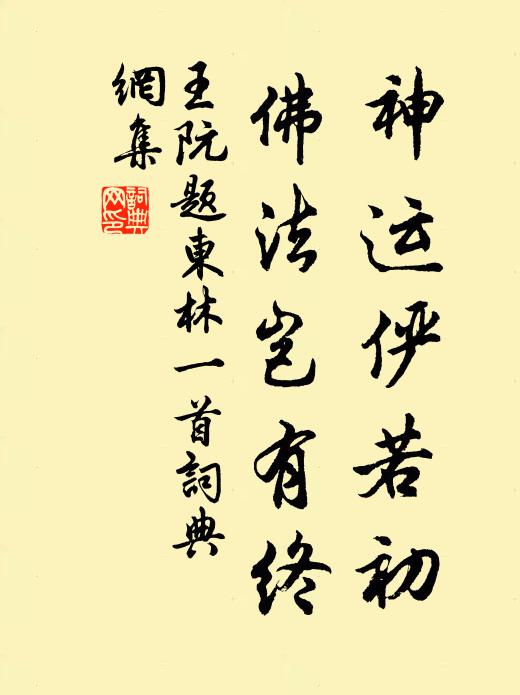 神运俨若初
佛法岂有终
王阮题東林一首詞典
網集
詞典
网印